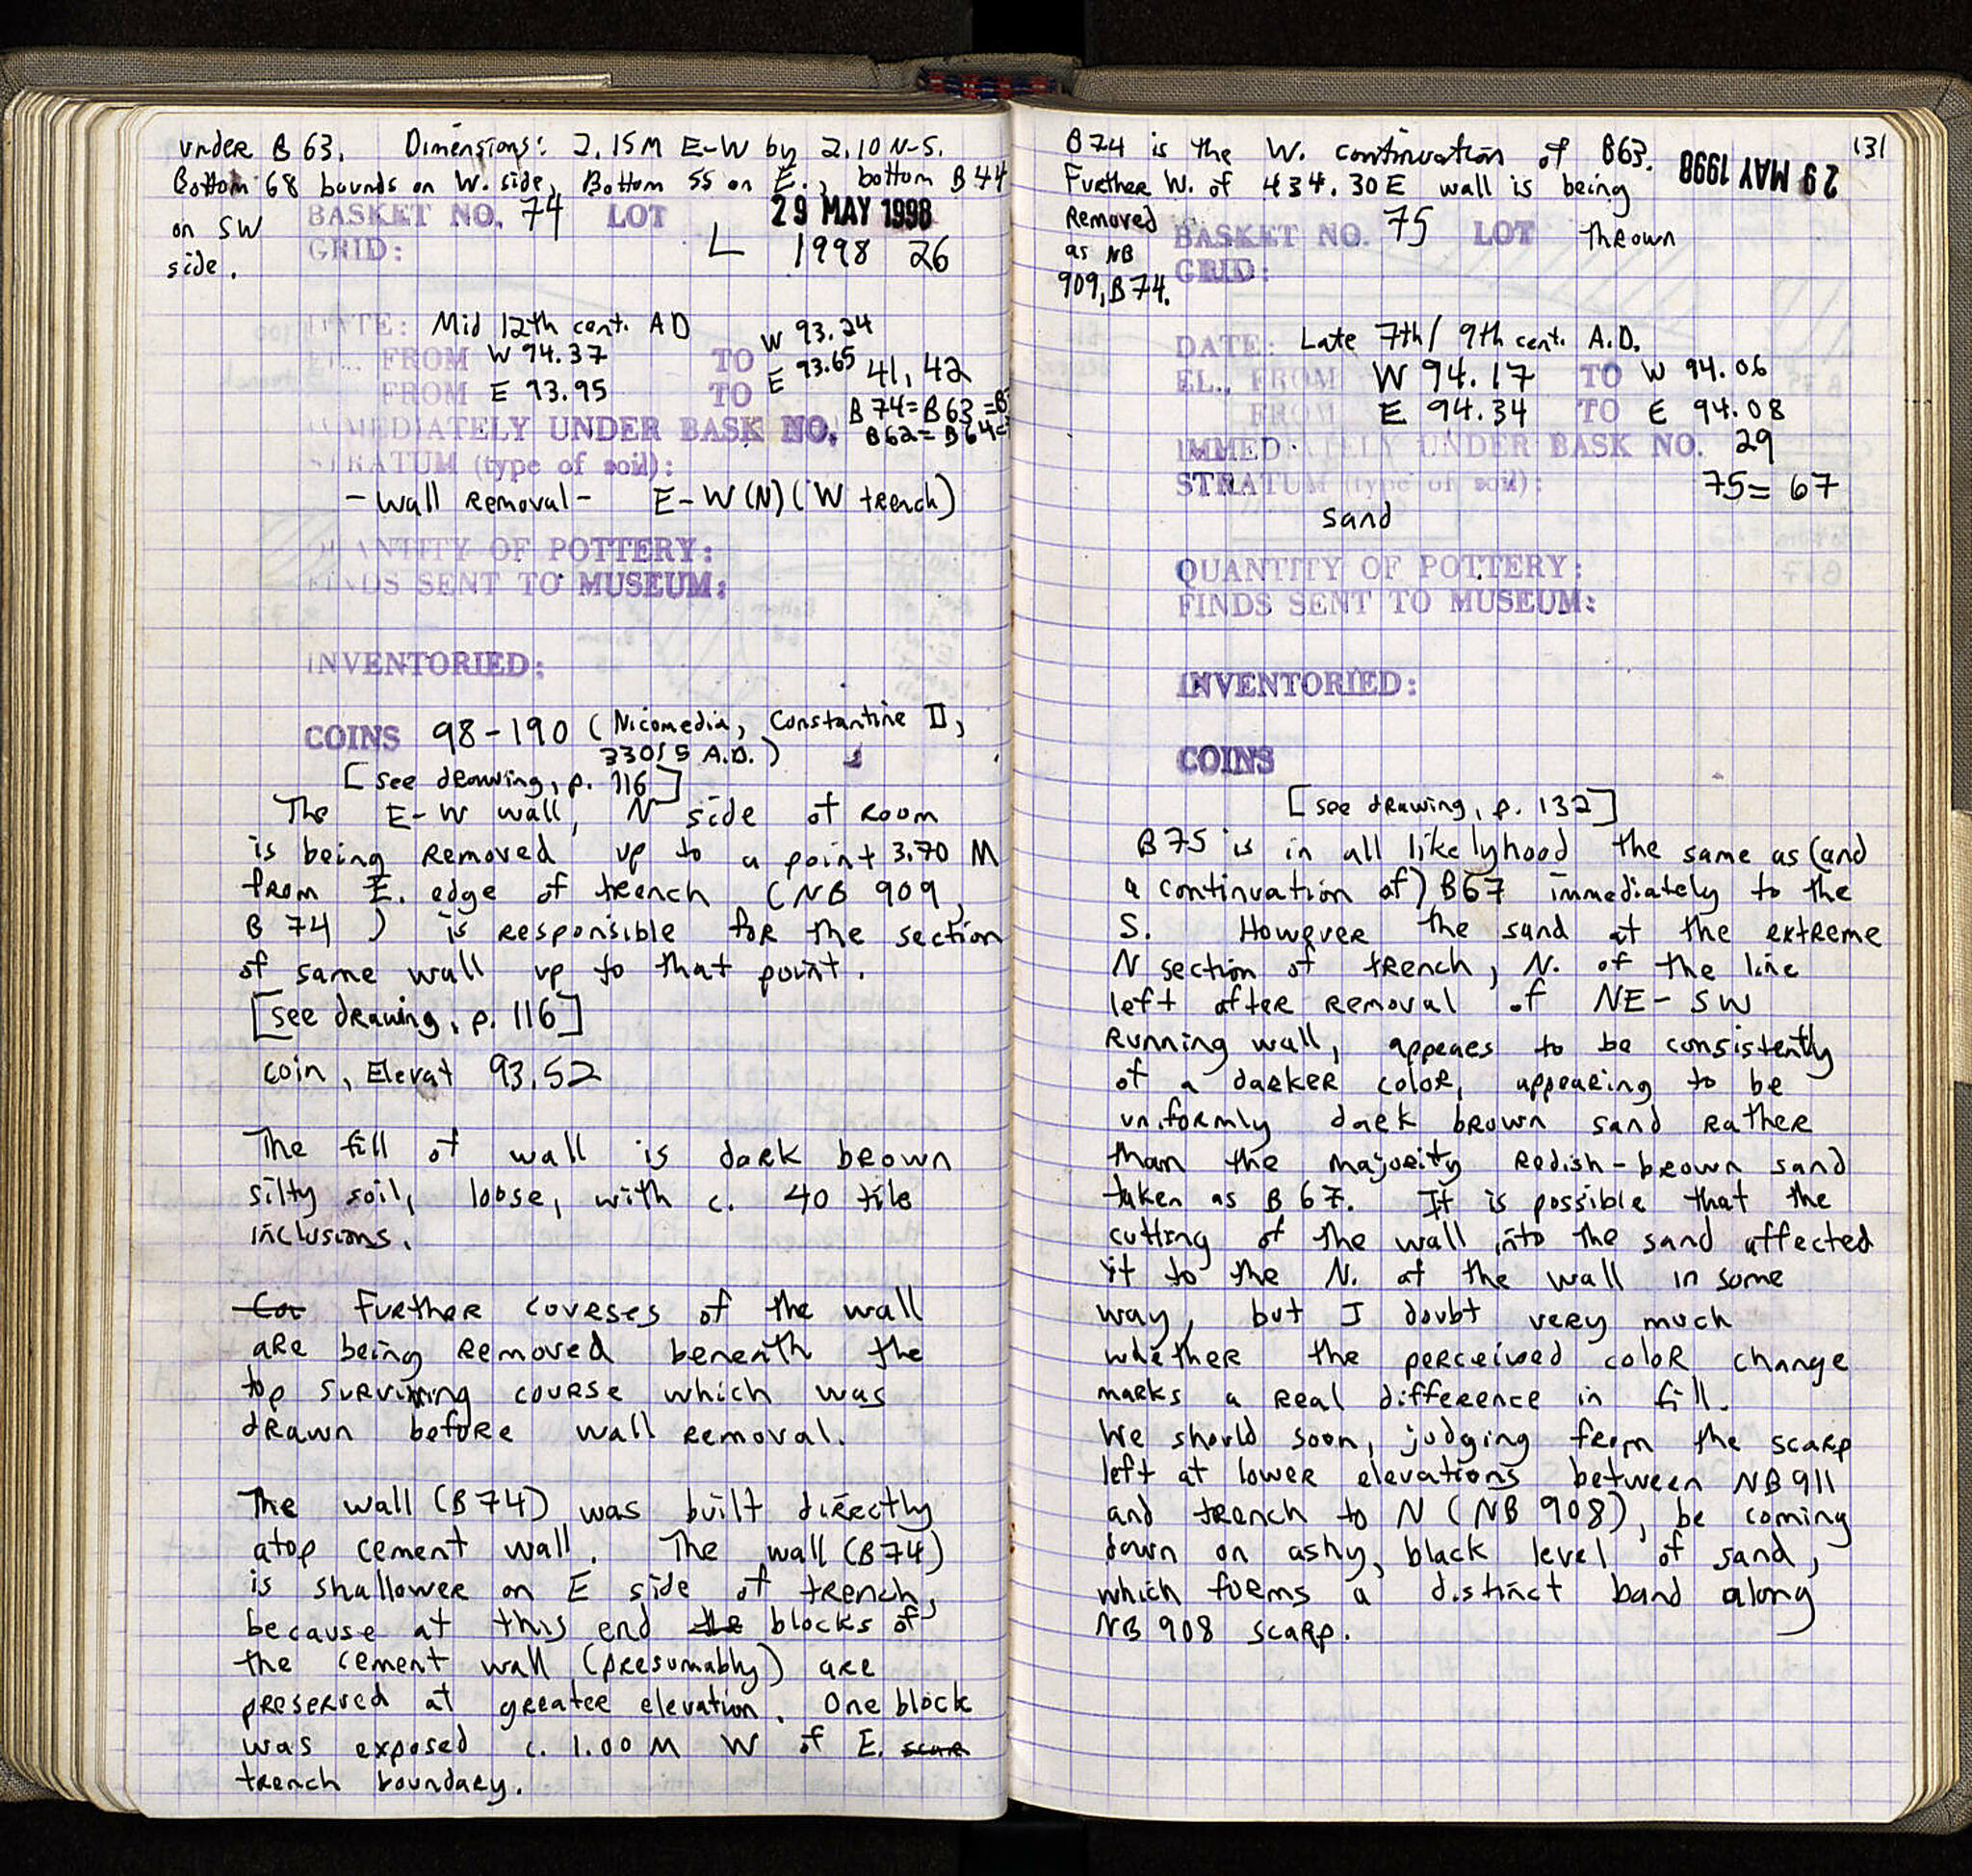 under B 63. Dimensions: 2.15M E-W by 2.10 N-S.
Bottom 68 bounds on W. side, Bottom 55 on E., bottom B 44
on SW
side.
BASKET NO. 74 LOT 29 MAY 1998
GRID: L 1998 26
DATE: Mid 12th cent. AD
EL., FROM W 94.37 TO W 93.24
FROM E 93.95 TO E 93.65 41, 42
B 74=B63 =B
IMMEDIATELY UNDER BASK NO. B62= B64=
STRATUM (type of soil):
- Wall Removal - E-W (N) (W trench)
QUANTITY OF POTTERY:
FINDS SENT TO MUSEUM:
INVENTORIED:
COINS 98-190 (Nicomedia, Constantine II,
330/5 A.D.)
[see drawing, p. 116]
The E-W wall, N side of room
is being removed up to a point 3.70 M
from E. edge of trench (NB 909,
B 74 ) is responsible for the section
of same wall up to that point.
[see drawing, p. 116]
coin, Elevat 93.52
The fill of wall is dark brown
silty soil, loose, with c. 40 tile
inclusions.
Cou Further courses of the wall
are being removed beneath the
top surviving course which was
drawn before wall removal.
The wall (B 74) was built directly
atop cement wall. The wall (B 74)
is shallower on E side of trench,
because at this end the blocks of
the cement wall (presumably) are
preserved at greater elevation. One block
was exposed c. 1.00 M W of E. scar
trench boundary.
131
29 MAY 1998
B74 is the W. continuation of B63.
Further W. of 434.30E wall is being
Removed
as NB
909, B74.
BASKET NO. 75 LOT thrown
GRID:
DATE: Late 7th/ 9th cent. A.D.
EL., FROM W 94.17 TO W 94.06
FROM E 94.34 TO E 94.08
IMMEDIATELY UNDER BASK NO. 29
STRATUM (type of soil): 75= 67
sand
QUANTITY OF POTTERY:
FINDS SENT TO MUSEUM:
INVENTORIED:
COINS
[see drawing, p. 132]
B75 is in all likelyhood the same as (and
a continuation of) B67 immediately to the
S. However the sand at the extreme
N section of trench, N. of the line
left after removal of NE-SW
running wall, appears to be consistently
of a darker color, appearing to be
uniformly dark brown sand rather
than the majority redish-brown sand
taken as B 67. It is possible that the
cutting of the wall into the sand affected
it to the N. of the wall in some
way, but I doubt very much
whether the perceived color change
marks a real difference in fill.
We should soon, judging from the scarp
left at lower elevations between NB 911
and trench to N (NB 908), be coming
down on ashy, black level of sand,
which forms a distinct band along
NB 908 scarp.